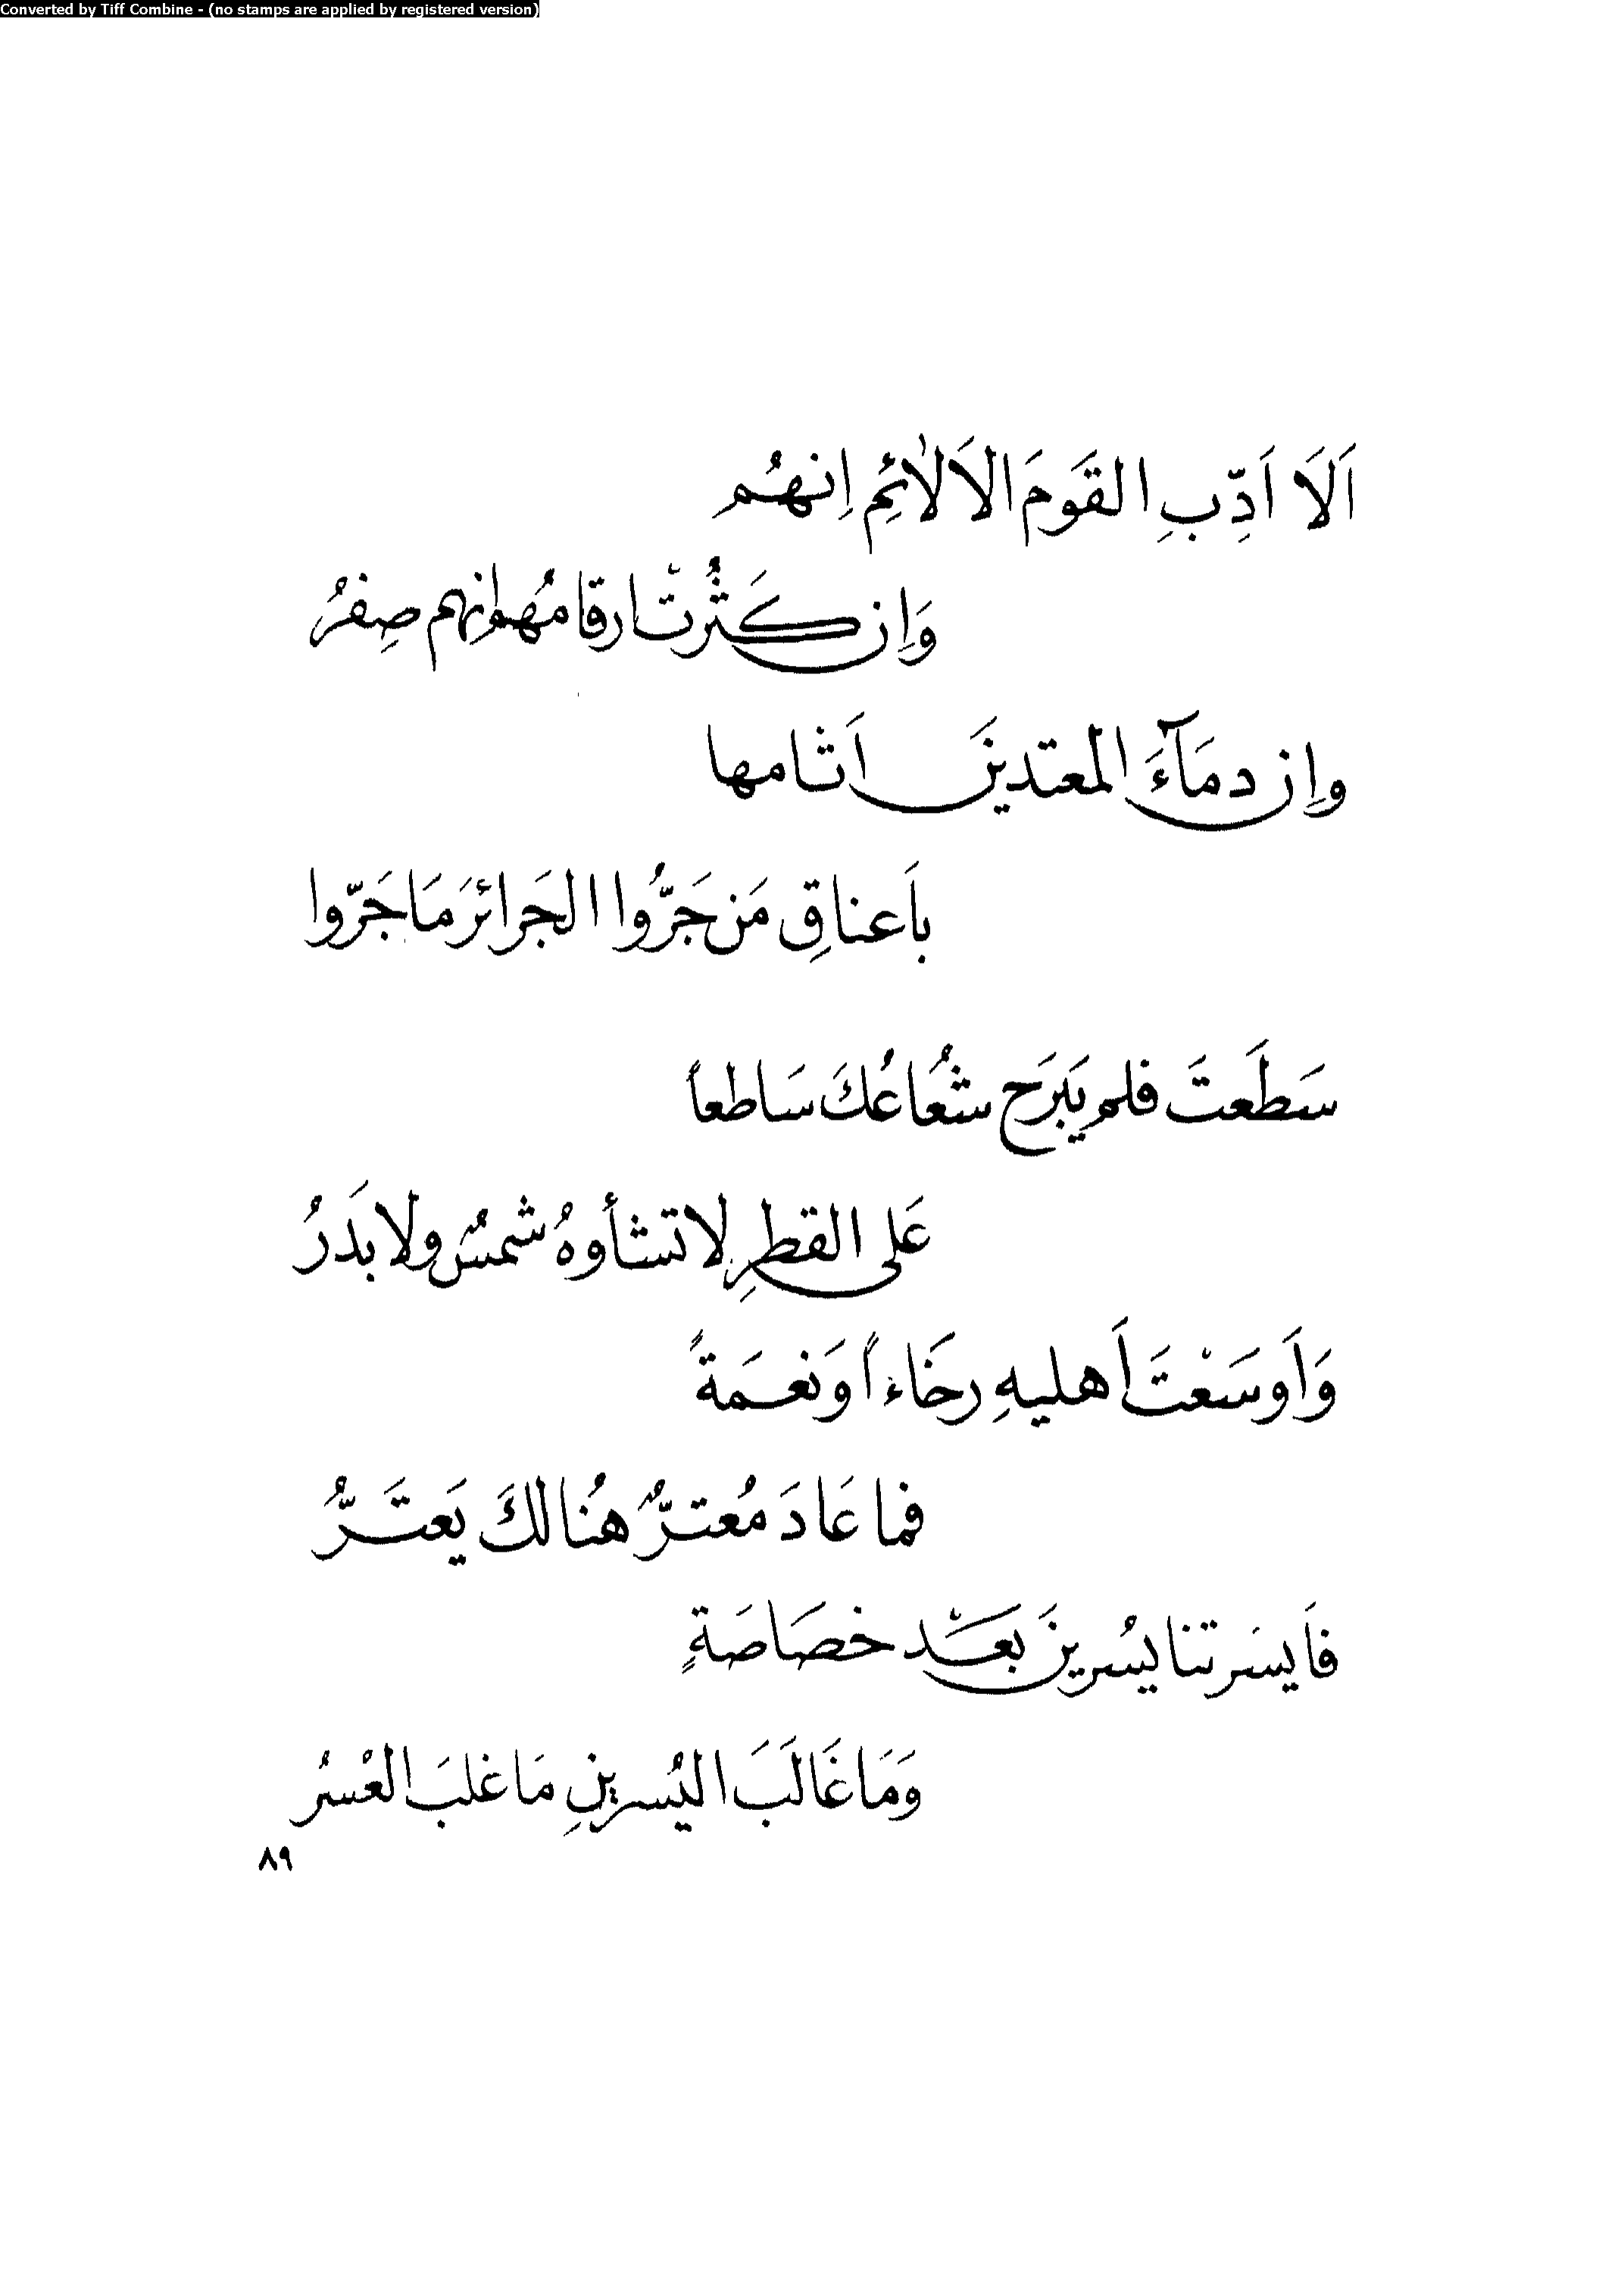 Converted by Tiff Combine - (no stamps are applied by registered version)
اَلَا اَدِّبِ القَومَ الاَلائِمِ اِنهُم
وَاِن كَثُرتْ ارقامُهوانهم صِفرُ
واِن دمَآءَ المعتدينَ اَثامها
باَعناقِ مَن جَرُّوا الجَرائرَ مَا جَرّوا
سَطَعتَ فلم يَبرَح شُعَاعُكَ سَاطعاً
عَلى القطرِ لا تشأوهُ شمسٌ ولا بَدَرُ
وَاَوسَعْتَ اَهليهِ رخَاءاً وَنعمَةً
فما عَادَ مُعترٌّ هُنالكَ يَعتَرُّ
فاَيسَرتنا يُسرينَ بَعَدْ خصَاصَةٍ
وَمَا غَالَبَ اليُسرينِ مَا غلبَ العْسرُ
٨٩